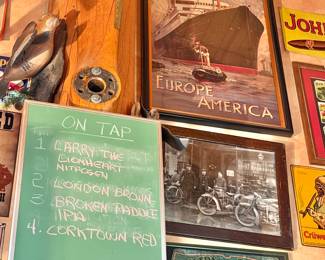 EUROPE
AMERICA
JOH
ON TAP
1 LARRY THE
LIONHEART
NITROGEN
2 LONDON BROWN
3 BROKEN PADDLE
IPA
4. CORKTOWN RED
Crüwe